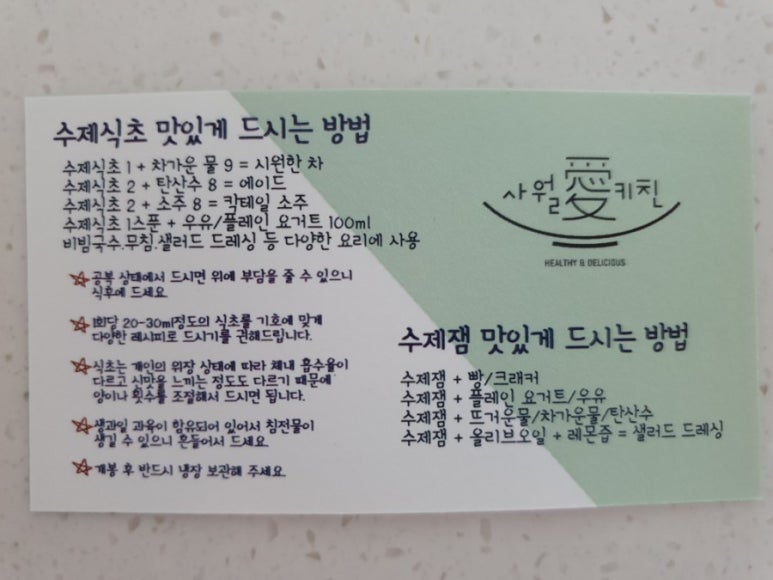 수제식초 맛있게 드시는 방법
수제식초 1 + 차가운 물 9 = 시원한 차
수제식초 2 + 탄산수 8 = 에이드
수제식초 2 + 소주 8 = 칵테일 소주
수제식초 1스푼 + 우유/플레인 요거트 100ml
비빔국수.무침.샐러드 드레싱 등 다양한 요리에 사용
공복 상태에서 드시면 위에 부담을 줄 수 있으니
식후에 드세요
1회당 20-30ml정도의 식초를 기호에 맞게
다양한 레시피로 드시기를 권해드립니다.
식초는 개인의 위장 상태에 따라 체내 흡수율이
다르고 신맛을 느끼는 정도도 다르기 때문에
양이나 횟수를 조절해서 드시면 됩니다.
생과일 과육이 함유되어 있어서 침전물이
생길 수 있으니 흔들어서 드세요
개봉 후 반드시 냉장 보관해 주세요.
사월愛키친
HEALTHY & DELICIOUS
수제잼 맛있게 드시는 방법
수제잼 + 빵/크래커
수제잼 + 플레인 요거트/우유
수제잼 + 뜨거운물/차가운물/탄산수
수제잼 + 올리브오일 + 레몬즙 = 샐러드 드레싱